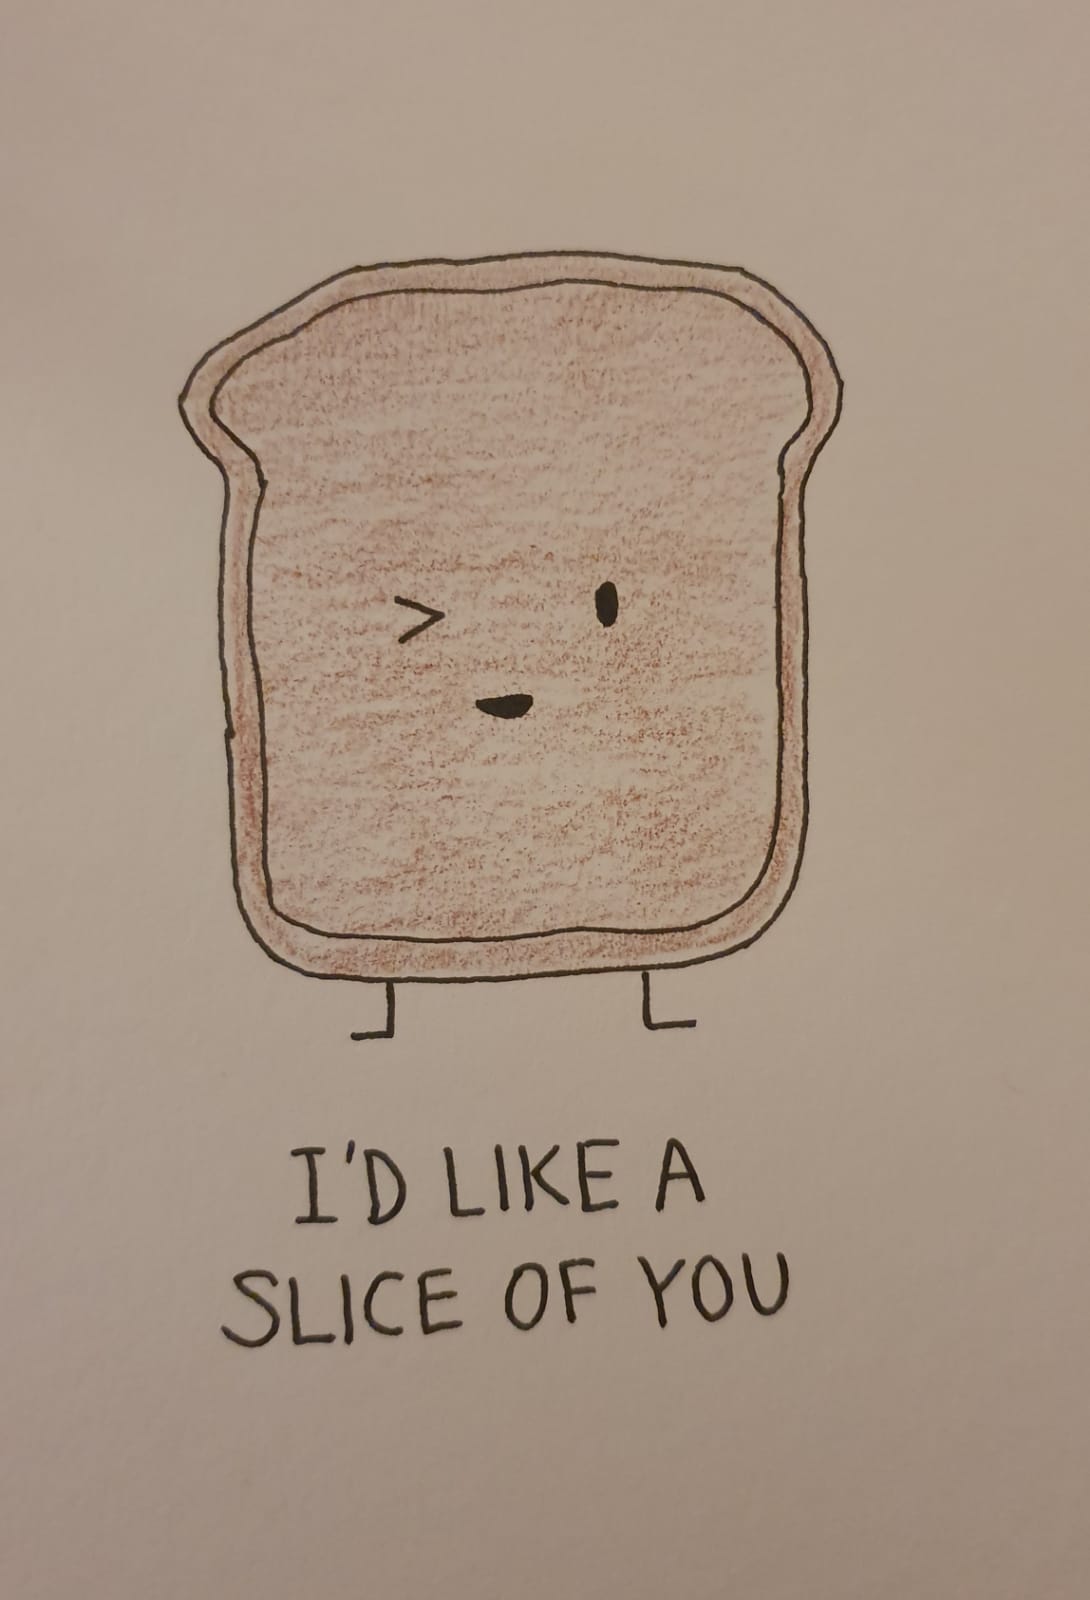 I'D LIKE A
SLICE OF YOU